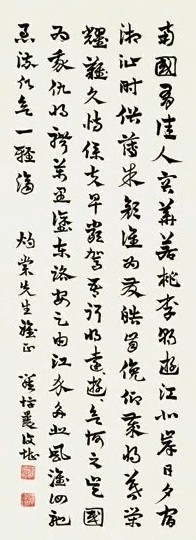 南國有佳人容華若桃李朝遊江北岸日夕宿
湘沚時俗薄朱顏誰為發皓齒俛仰歲將暮榮
耀難久恃僕夫早嚴駕吾行將遠遊欲何之吳國
為我仇將騁萬里塗東路安足由江介多悲風淮泗馳
急流願欲一輕濟
先生雅正